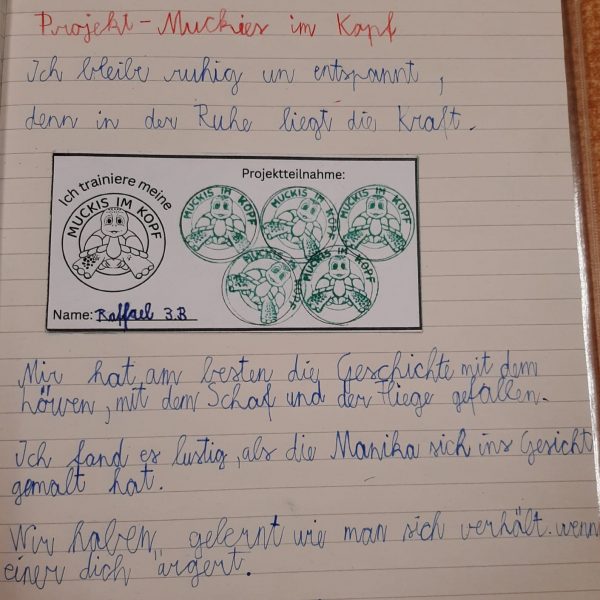 Projekt-Muckies im Kopf
Ich bleibe ruhig un entspannt,
denn in der Ruhe liegt die Kraft.
Ich trainiere meine
MUCKIS IM KOPF
Projektteilnahme:
MUCKIS IM KOPF
MUCKIS IM KOPF
MUCKIS IM KOPF
MUCKIS IM KOPF
MUCKIS IM KOPF
Name: Raffael 3.B
Mir hat am besten die Geschichte mit dem
höwen, mit dem Schaf und der Fliege gefallen.
Ich fand es lustig, als die Manika sich ins Gesicht
gemalt hat.
Wir haben gelernt wie man sich verhält. wenn
einer dich ärgert.